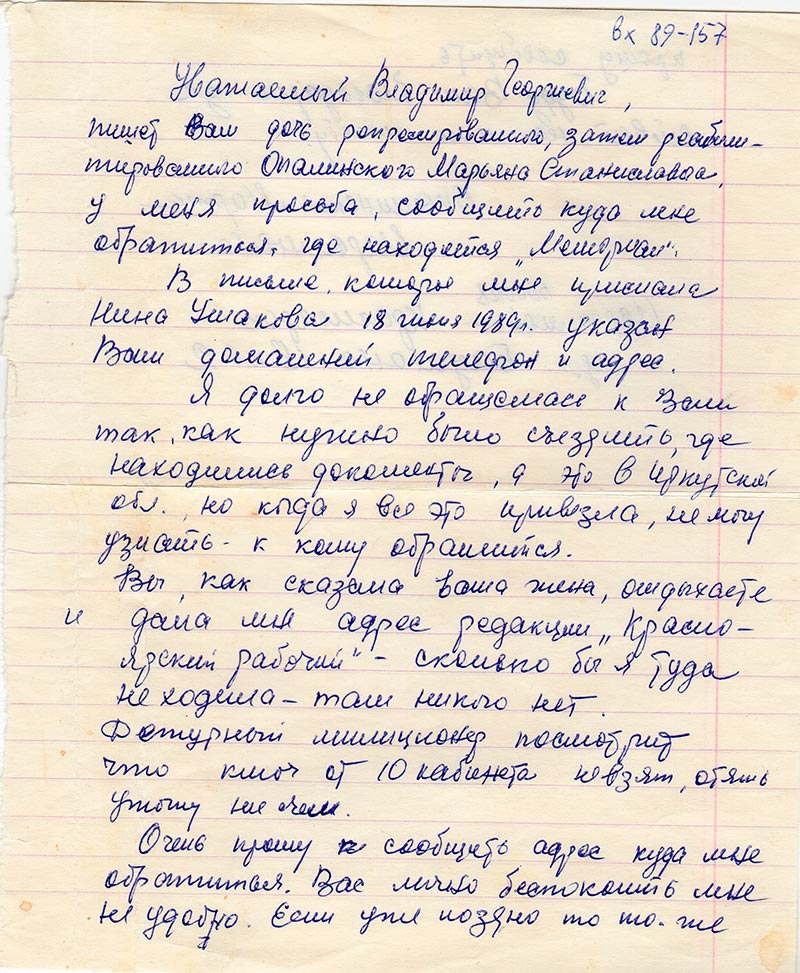 вх 89-157
Уважаемый Владимир Георгиевич,
пишет Вам дочь репресированного, затем реабили-
тированного Опалинского Марьяна Станиславов.
У меня просьба, сообщить куда мне
обратиться, где находится „Мемориал".
В письме, которое мне прислала
Нина Ушакова 18 июня 1989г. указан
Ваш домашний телефон и адрес.
Я долго не обращалась к Вам
так, как нужно было съездить, где
находились документы, а это в Иркутской
обл., но когда я все это привезла, не могу
узнать - к кому обратится.
Вы, как сказала ваша жена, отдыхаете
и дала мне адрес редакции „Красно-
ярский рабочий" - сколько бы я туда
не ходила - там никого нет.
Дежурный милиционер посмотрит
что ключ от 10 кабинета не взят, опять
ухожу ни с чем.
Очень прошу сообщить адрес куда мне
обратиться. Вас лично беспокоить мне
не удобно. Если уже поздно то то-же